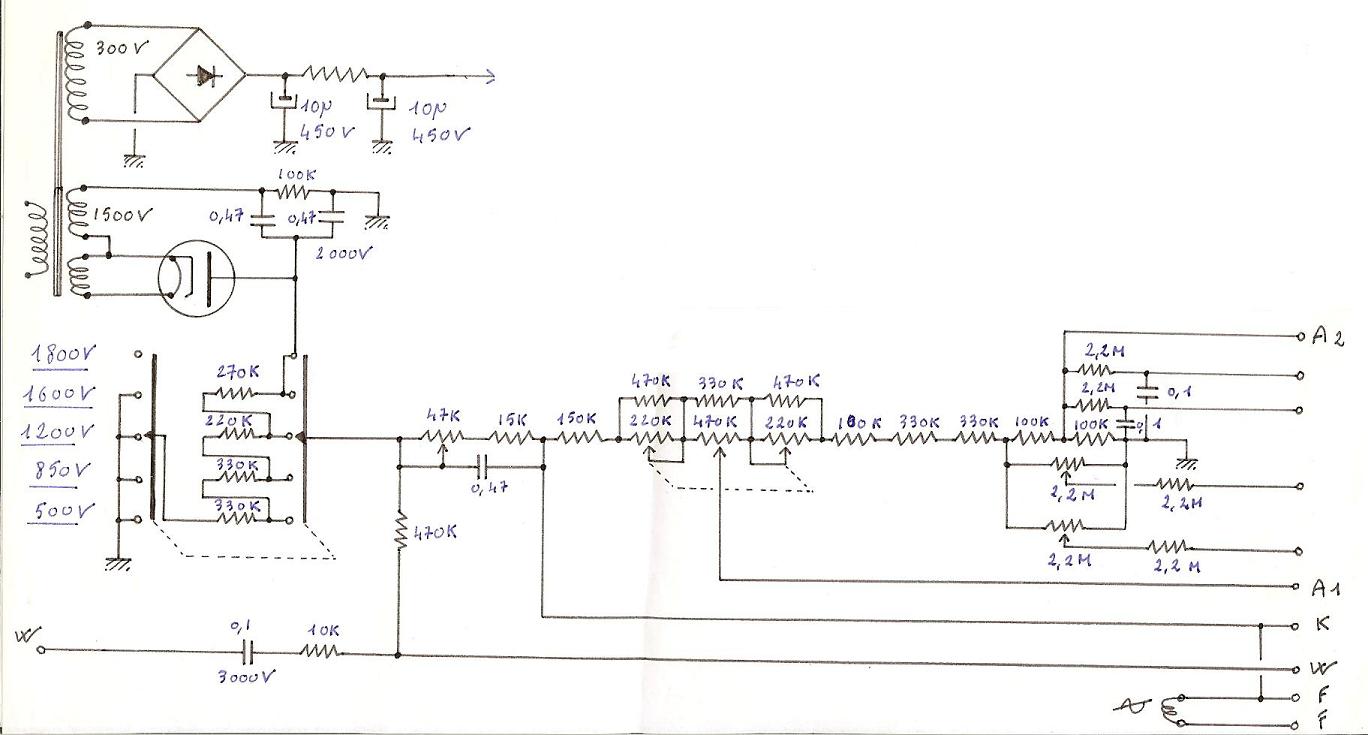 300V
10µ
450V
10µ
450V
100K
1500V
0,47
0,47
2000V
1800V
1600V
1200V
850V
500V
270K
220K
330K
330K
47K
15K
150K
470K
330K
470K
220K
470K
220K
100K
330K
330K
100K
100K
2,2M
2,2M
0,1
0,1
A2
0,47
470K
2,2M
2,2M
2,2M
2,2M
A1
K
W
0,1
10K
3000V
W
F
F